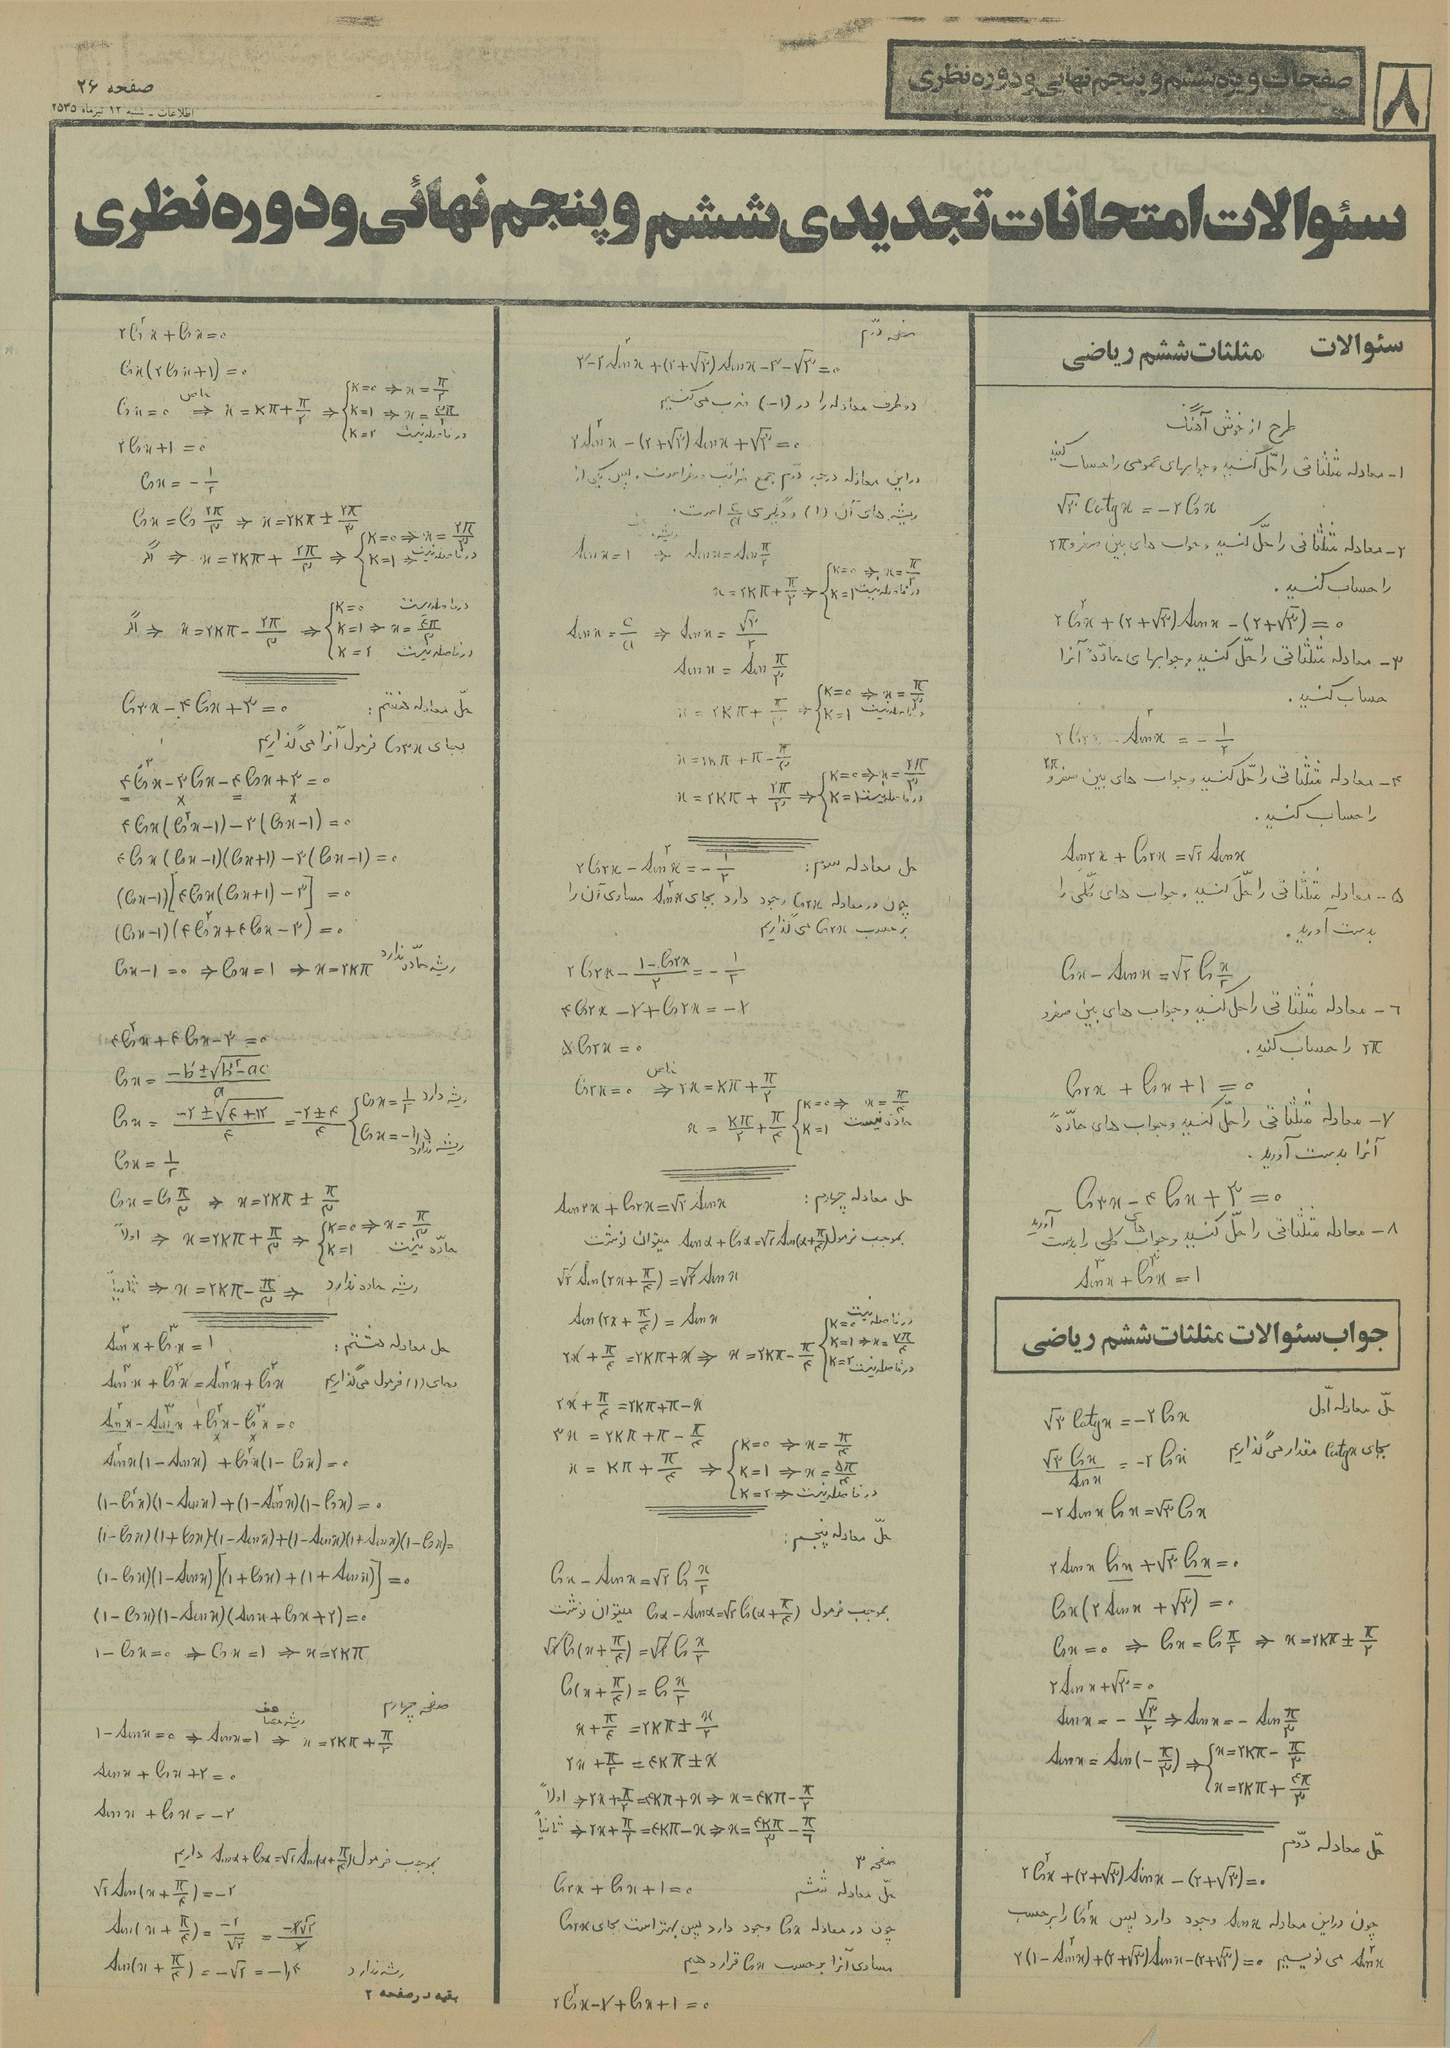 صفحات ویژه ششم و پنجم نهائی و دوره نظری
۸
صفحه ۲۶
اطلاعات ـ شنبه ۱۲ تیرماه ۲۵۳۵
سئوالات امتحانات تجدیدی ششم و پنجم نهائی و دوره نظری
سئوالات مثلثات ششم ریاضی
طرح از خوش آهنگ
۱- معادله مثلثاتی را حلّ کنید و جوابهای عمومی را حساب کنید
√۳ Cotgx = -۲Cosx
۲- معادله مثلثاتی را حلّ کنید و جواب های بین صفر و ۲π
را حساب کنید.
۲Cos²x + (۲+√۳) Sinx - (۲+√۳) = ۰
۳- معادله مثلثاتی را حلّ کنید و جوابهای حادّهٔ آنرا
حساب کنید.
۲Cos۲x - Sin²x = -۱/۲
۴- معادله مثلثاتی را حلّ کنید و جواب های بین صفر و ۲π
را حساب کنید.
Sin۲x + Cos۲x = √۲ Sinx
۵- معادله مثلثاتی را حلّ کنید و جواب های کلّی را
بدست آورید.
Cosx - Sinx = √۲ Cos x/۲
۶- معادله مثلثاتی را حل کنید و جواب های بین صفر و
۲π را حساب کنید.
Cos۲x + Cosx + ۱ = ۰
۷- معادله مثلثاتی را حلّ کنید و جواب های حادّهٔ
آنرا بدست آورید.
Cos۳x - ۴Cosx + ۳ = ۰
۸- معادله مثلثاتی را حلّ کنید و جواب های کلی را بدست آورید
Sin³x + Cos³x = ۱
جواب سئوالات مثلثات ششم ریاضی
حلّ معادله اوّل
√۳ Cotgx = -۲Cosx
بجای Cotgx مقدار می‌گذاریم
√۳ Cosx / Sinx = -۲Cosx
-۲Sinx Cosx = √۳ Cosx
۲Sinx Cosx + √۳ Cosx = ۰
Cosx (۲Sinx + √۳) = ۰
Cosx = ۰ ⇒ Cosx = Cos π/۲ ⇒ x = ۲Kπ ± π/۲
۲Sinx + √۳ = ۰
Sinx = -√۳/۲ ⇒ Sinx = -Sin π/۳
Sinx = Sin(-π/۳) ⇒ { x = ۲Kπ - π/۳
x = ۲Kπ + ۴π/۳
حلّ معادله دوّم
۲Cos²x + (۲+√۳) Sinx - (۲+√۳) = ۰
چون در این معادله Sinx وجود دارد پس Cos²x را بر حسب
Sin²x می نویسیم ۲(۱-Sin²x) + (۲+√۳)Sinx - (۲+√۳) = ۰
صفحه دوّم
۲-۲Sin²x + (۲+√۳) Sinx -۲-√۳ = ۰
دو طرف معادله را در (۱-) ضرب می‌کنیم
۲Sin²x - (۲+√۳) Sinx + √۳ = ۰
در این معادله درجه دوّم جمع ضرائب صفر است، پس یکی از
ریشه های آن (۱) و دیگری c/a است.
Sinx = ۱ ⇒ Sinx = Sin π/۲
x = ۲Kπ + π/۲ ⇒ { K=۰ ⇒ x = π/۲
K=۱ در فاصله نیست
Sinx = c/a ⇒ Sinx = √۳/۲
Sinx = Sin π/۳
x = ۲Kπ + π/۳ ⇒ { K=۰ ⇒ x = π/۳
K=۱ در فاصله نیست
x = ۲Kπ + π - π/۳
x = ۲Kπ + ۲π/۳ ⇒ { K=۰ ⇒ x = ۲π/۳
K=۱ در فاصله نیست
حل معادله سوم: ۲Cos۲x - Sin²x = -۱/۲
چون در معادله Cos۲x وجود دارد بجای Sin²x مساوی آن را
بر حسب Cos۲x می‌گذاریم
۲Cos۲x - (۱-Cos۲x)/۲ = -۱/۲
۴Cos۲x - ۱ + Cos۲x = -۱
۵Cos۲x = ۰
Cos۲x = ۰ خاص ⇒ ۲x = Kπ + π/۲
x = Kπ/۲ + π/۴ { K=۰ ⇒ x = π/۴
K=۱ حادّه نیست
حل معادله چهارم: Sin۲x + Cos۲x = √۲ Sinx
بموجب فرمول Sinα + Cosα = √۲ Sin(α + π/۴) میتوان نوشت
√۲ Sin(۲x + π/۴) = √۲ Sinx
Sin(۲x + π/۴) = Sinx
۲x + π/۴ = ۲Kπ + x ⇒ x = ۲Kπ - π/۴ { K=۰ در فاصله نیست
K=۱ ⇒ x = ۷π/۴
K=۲ در فاصله نیست
۲x + π/۴ = ۲Kπ + π - x
۳x = ۲Kπ + π - π/۴
x = Kπ + π/۴ ⇒ { K=۰ ⇒ x = π/۴
K=۱ ⇒ x = ۵π/۴
K=۲ ⇒ در فاصله نیست
حلّ معادله پنجم:
Cosx - Sinx = √۲ Cos x/۲
بموجب فرمول Cosα - Sinα = √۲ Cos(α + π/۴) میتوان نوشت
√۲ Cos(x + π/۴) = √۲ Cos x/۲
Cos(x + π/۴) = Cos x/۲
x + π/۴ = ۲Kπ ± x/۲
۲x + π/۲ = ۴Kπ ± x
اولاً ⇒ ۲x + π/۲ = ۴Kπ + x ⇒ x = ۴Kπ - π/۲
ثانیاً ⇒ ۲x + π/۲ = ۴Kπ - x ⇒ x = ۴Kπ/۳ - π/۶
صفحه ۳
حلّ معادله ششم Cos۲x + Cosx + ۱ = ۰
چون در معادله Cosx وجود دارد پس بهتر است بجای Cos۲x
مساوی آنرا بر حسب Cosx قرار دهیم
۲Cos²x - ۱ + Cosx + ۱ = ۰
۲Cos²x + Cosx = ۰
Cosx (۲Cosx + ۱) = ۰
Cosx = ۰ خاص ⇒ x = Kπ + π/۲ ⇒ { K=۰ ⇒ x = π/۲
K=۱ ⇒ x = ۳π/۲
K=۲ در فاصله نیست
۲Cosx + ۱ = ۰
Cosx = -۱/۲
Cosx = Cos ۲π/۳ ⇒ x = ۲Kπ ± ۲π/۳
اگر ⇒ x = ۲Kπ + ۲π/۳ ⇒ { K=۰ ⇒ x = ۲π/۳
K=۱ ⇒ در فاصله نیست
اگر ⇒ x = ۲Kπ - ۲π/۳ ⇒ { K=۰
K=۱ ⇒ x = ۴π/۳
K=۲ در فاصله نیست
حلّ معادله هفتم: Cos۳x - ۴Cosx + ۳ = ۰
بجای Cos۳x فرمول آنرا می‌گذاریم
۴Cos³x - ۳Cosx - ۴Cosx + ۳ = ۰
۴Cosx (Cos²x - ۱) - ۳(Cosx - ۱) = ۰
۴Cosx (Cosx - ۱)(Cosx + ۱) - ۳(Cosx - ۱) = ۰
(Cosx - ۱)[۴Cosx(Cosx + ۱) - ۳] = ۰
(Cosx - ۱)(۴Cos²x + ۴Cosx - ۳) = ۰
Cosx - ۱ = ۰ ⇒ Cosx = ۱ ⇒ x = ۲Kπ ریشه حادّه ندارد
۴Cos²x + ۴Cosx - ۳ = ۰
Cosx = (-b′ ± √(b′² - ac))/a
Cosx = (-۲ ± √(۴+۱۲))/۴ = (-۲ ± ۴)/۴ { Cosx = ۱/۲ ریشه دارد
Cosx = -۱,۵ ریشه ندارد
Cosx = ۱/۲
Cosx = Cos π/۳ ⇒ x = ۲Kπ ± π/۳
اولاً ⇒ x = ۲Kπ + π/۳ ⇒ { K=۰ ⇒ x = π/۳
K=۱ حادّه نیست
ثانیاً ⇒ x = ۲Kπ - π/۳ ⇒ ریشه حاده ندارد
حل معادله هشتم: Sin³x + Cos³x = ۱
بجای (۱) فرمول می‌گذاریم Sin³x + Cos³x = Sin²x + Cos²x
Sin²x - Sin³x + Cos²x - Cos³x = ۰
Sin²x(۱ - Sinx) + Cos²x(۱ - Cosx) = ۰
(۱ - Cos²x)(۱ - Sinx) + (۱ - Sin²x)(۱ - Cosx) = ۰
(۱ - Cosx)(۱ + Cosx)(۱ - Sinx) + (۱ - Sinx)(۱ + Sinx)(۱ - Cosx) =
(۱ - Cosx)(۱ - Sinx)[(۱ + Cosx) + (۱ + Sinx)] = ۰
(۱ - Cosx)(۱ - Sinx)(Sinx + Cosx + ۲) = ۰
۱ - Cosx = ۰ ⇒ Cosx = ۱ ⇒ x = ۲Kπ
صفحه چهارم
۱ - Sinx = ۰ ⇒ Sinx = ۱ ⇒ x = ۲Kπ + π/۲
Sinx + Cosx + ۲ = ۰
Sinx + Cosx = -۲
بموجب فرمول Sinα + Cosα = √۲ Sin(α + π/۴) داریم
√۲ Sin(x + π/۴) = -۲
Sin(x + π/۴) = -۲/√۲ = -۲√۲/۲
Sin(x + π/۴) = -√۲ = -۱,۴ ریشه ندارد
بقیه در صفحه ۲